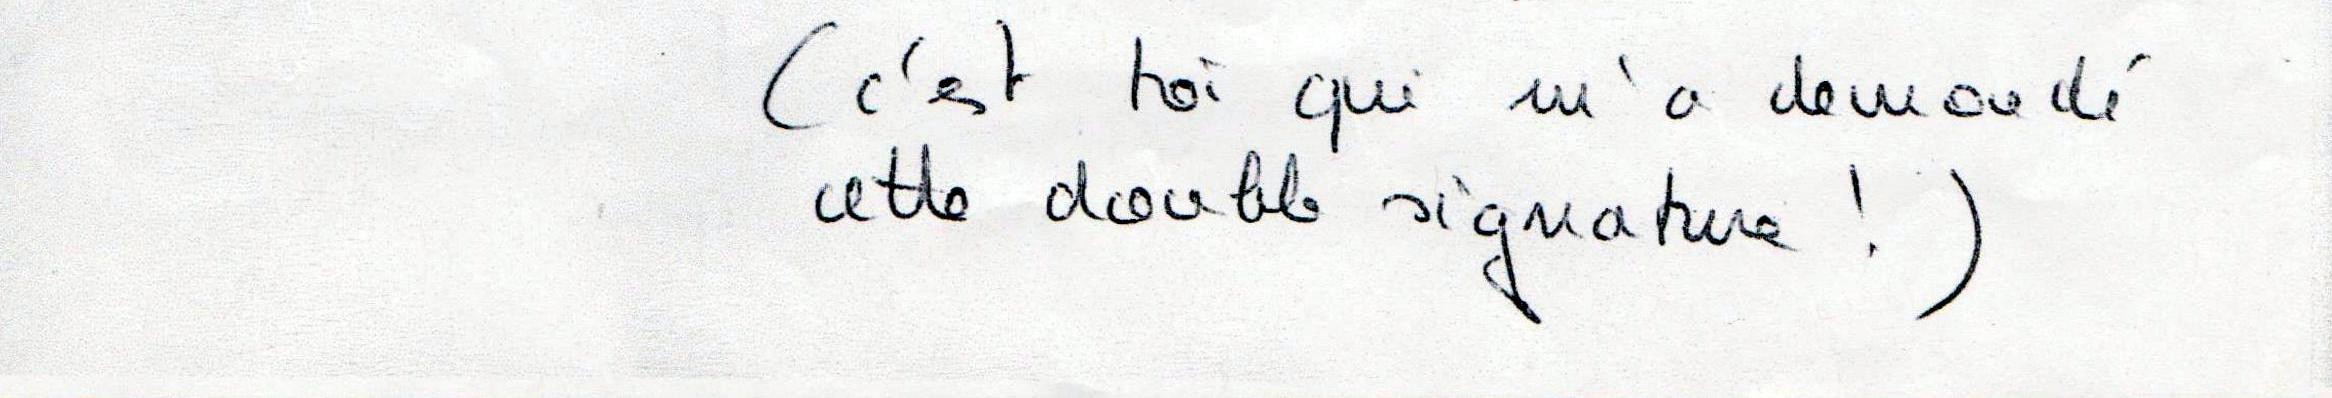 (c'est toi qui m'a demandé
cette double signature !)